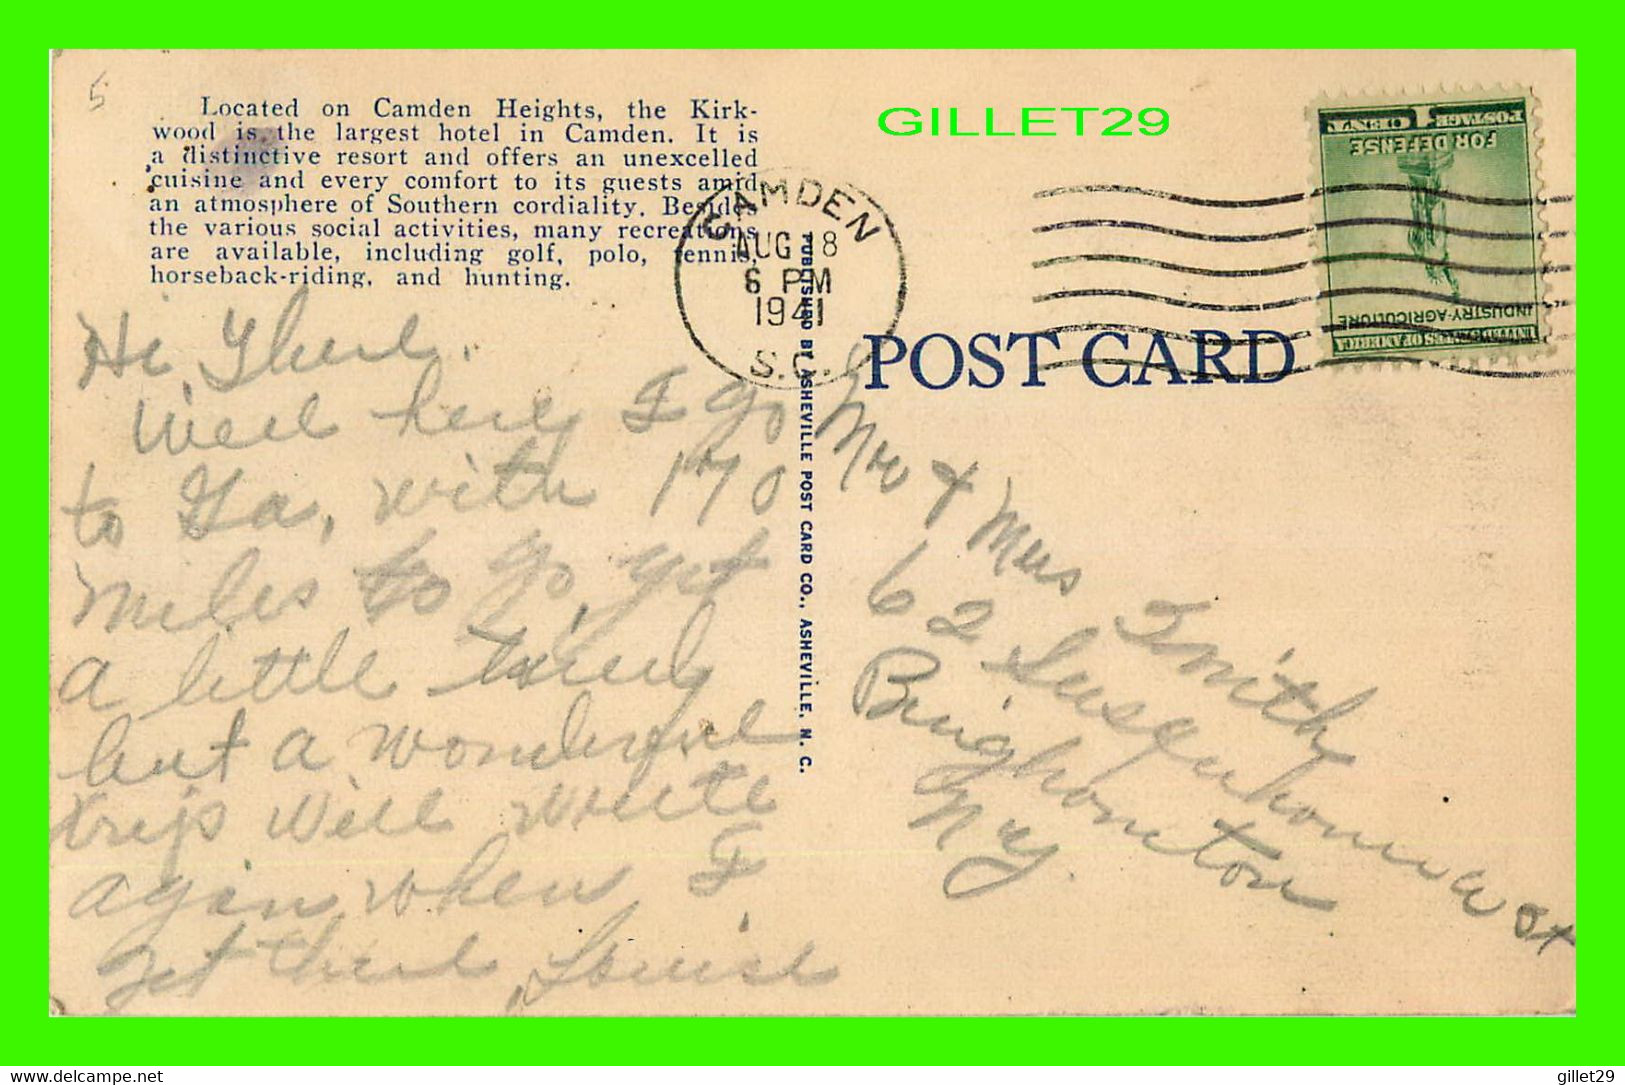 5
Located on Camden Heights, the Kirk-
wood is the largest hotel in Camden. It is
a distinctive resort and offers an unexcelled
cuisine and every comfort to its guests amid
an atmosphere of Southern cordiality. Besides
the various social activities, many recreations
are available, including golf, polo, tennis,
horseback-riding, and hunting.
GILLET29
CAMDEN
AUG 8
6 PM
1941
S.C.
1 CENT 1
POSTAGE
FOR DEFENSE
INDUSTRY-AGRICULTURE
UNITED STATES OF AMERICA
POST CARD
PUBLISHED BY ASHEVILLE POST CARD CO., ASHEVILLE, N. C.
Hi There.
Well here I go
to Ga, with 170
miles to go, yet
a little
but a wonderful
trip will write
again when I
get there, Louise
Mr & Mrs Smith
62 Susquhanna St
Binghamton
NY.
My Images.com
gillet29